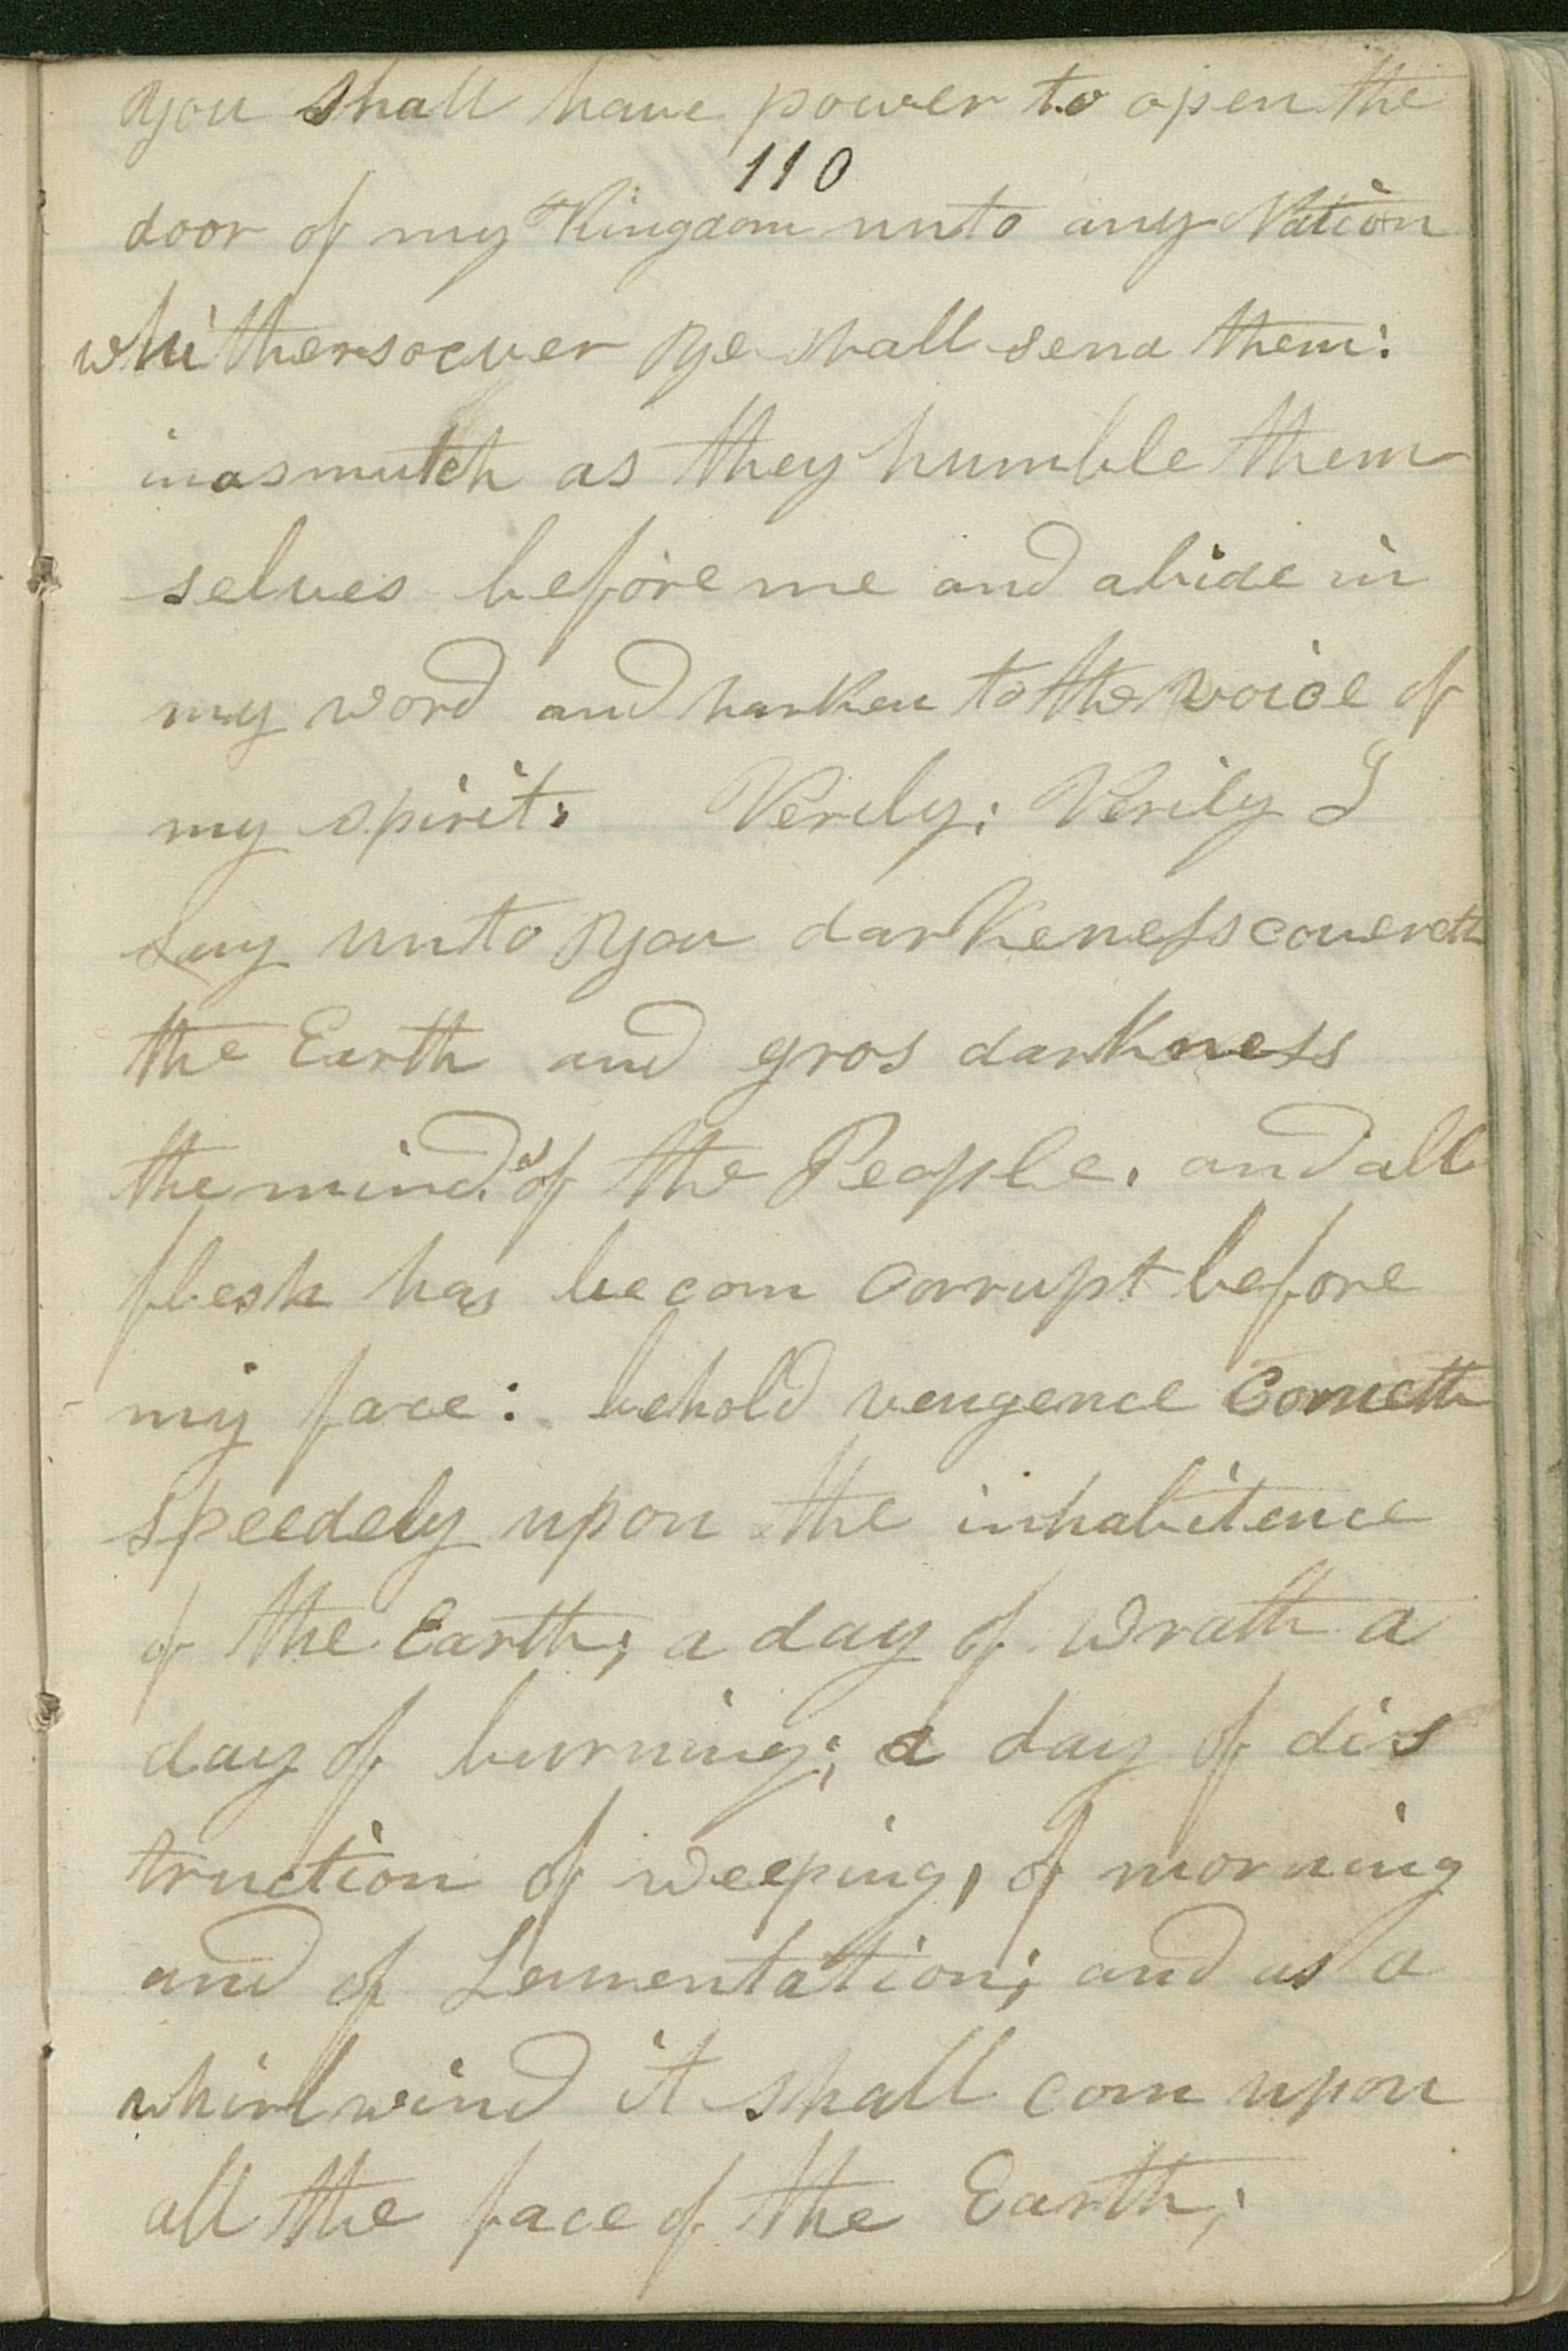 you shall have power to open the
110
door of my Kingdom unto any Nation
whithersoever ye shall send them:
inasmutch as they humble them
selves before me and abide in
my word and harken to the voice of
my spirit: Verily; Verily I
Say unto you darkeness covereth
the Earth and gros darkness
the minds of the People. and all
flesh has becom corrupt before
my face: behold vengence Cometh
speedely upon the inhabitence
of the Earth; a day of wrath a
day of burning; a day of dis
truction of weeping, of morning
and of Lamentation; and as a
whirlwind it shall com upon
all the face of the Earth;